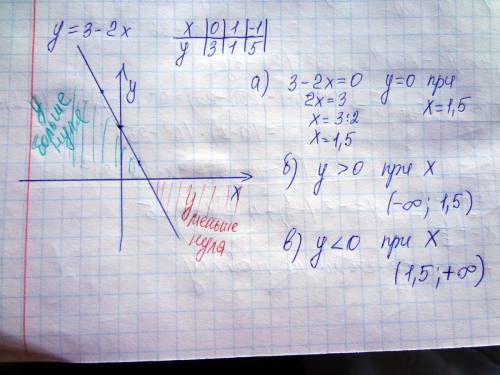 y = 3 - 2x
x | 0 | 1 | -1
y | 3 | 1 | 5
y
x
y больше нуля
y меньше нуля
а) 3 - 2x = 0 y = 0 при
2x = 3 x = 1,5
x = 3:2
x = 1,5
б) y > 0 при x
(-∞; 1,5)
в) y < 0 при x
(1,5; +∞)